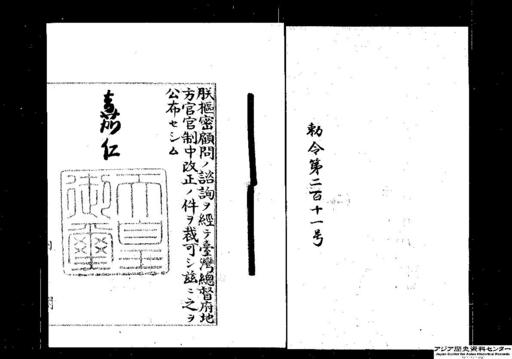 勅令第二百十一号
朕樞密顧問ノ諮詢ヲ經テ臺灣總督府地
方官官制中改正ノ件ヲ裁可シ茲ニ之ヲ
公布セシム
嘉仁
天皇
御璽
アジア歴史資料センター
Japan Center for Asian Historical Records